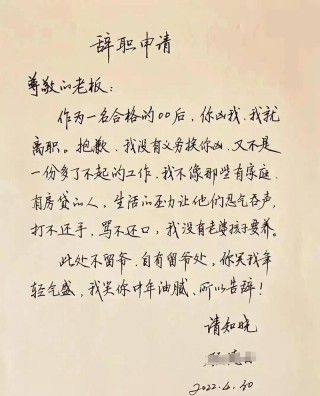 辞职申请
尊敬的老板：
作为一名合格的00后，你凶我，我就
离职。抱歉，我没有义务挨你凶，又不是
一份多了不起的工作，我不像那些有家庭
有房贷的人，生活的压力让他们忍气吞声，
打不还手，骂不还口，我没有老婆孩子要养。
此处不留爷，自有留爷处，你笑我年
轻气盛，我笑你中年油腻，所以告辞！
请知晓
2022.4.30